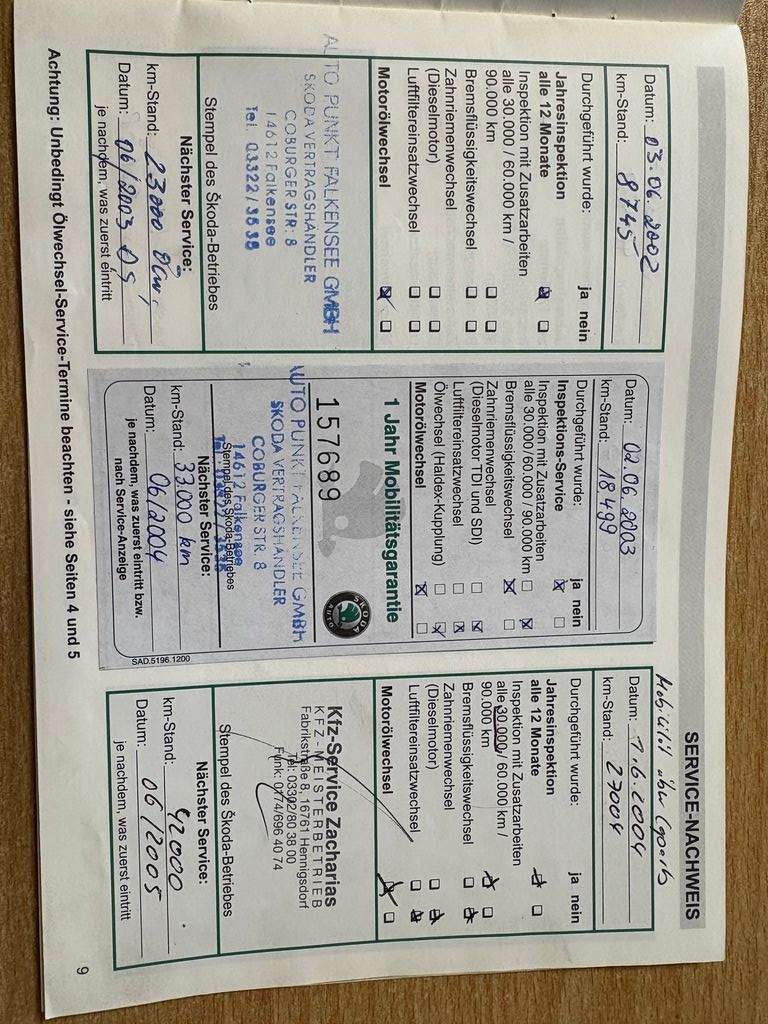 SERVICE-NACHWEIS
Datum: 03.06.2002
km-Stand: 8745
Durchgeführt wurde: ja nein
Jahresinspektion
alle 12 Monate
Inspektion mit Zusatzarbeiten
alle 30.000 / 60.000 km /
90.000 km
Bremsflüssigkeitswechsel
Zahnriemenwechsel
(Dieselmotor)
Luftfiltereinsatzwechsel
Motorölwechsel
AUTO PUNKT FALKENSEE GMBH
SKODA VERTRAGSHÄNDLER
COBURGER STR. 8
14612 Falkensee
Tel. 03322/3638
Stempel des Škoda-Betriebes
Nächster Service:
km-Stand: 23000
Datum: 06/2003
je nachdem, was zuerst eintritt
Datum: 02.06.2003
km-Stand: 18.499
Durchgeführt wurde: ja nein
Inspektions-Service
Inspektion mit Zusatzarbeiten
alle 30.000/60.000 / 90.000 km
Bremsflüssigkeitswechsel
Zahnriemenwechsel
(Dieselmotor TDI und SDI)
Luftfiltereinsatzwechsel
Ölwechsel (Haldex-Kupplung)
Motorölwechsel
1 Jahr Mobilitätsgarantie
157689
SKODA
AUTO
AUTO PUNKT FALKENSEE GMBH
SKODA VERTRAGSHÄNDLER
COBURGER STR. 8
14612 Falkensee
Stempel des Škoda-Betriebes
Nächster Service:
km-Stand: 33.000 km
Datum: 06/2004
je nachdem, was zuerst eintritt bzw.
nach Service-Anzeige
SAD.5196.1200
Mobilität über
Datum: 7.6.2004
km-Stand: 27004
Durchgeführt wurde: ja nein
Jahresinspektion
alle 12 Monate
Inspektion mit Zusatzarbeiten
alle 30.000 / 60.000 km /
90.000 km
Bremsflüssigkeitswechsel
Zahnriemenwechsel
(Dieselmotor)
Luftfiltereinsatzwechsel
Motorölwechsel
Kfz-Service Zacharias
KFZ-MEISTERBETRIEB
Fabrikstraße 8, 16761 Hennigsdorf
Tel: 03302/80 38 00
Funk: 0174/696 40 74
Stempel des Škoda-Betriebes
Nächster Service:
km-Stand: 42000
Datum: 06/2005
je nachdem, was zuerst eintritt
Achtung: Unbedingt Ölwechsel-Service-Termine beachten - siehe Seiten 4 und 5
9